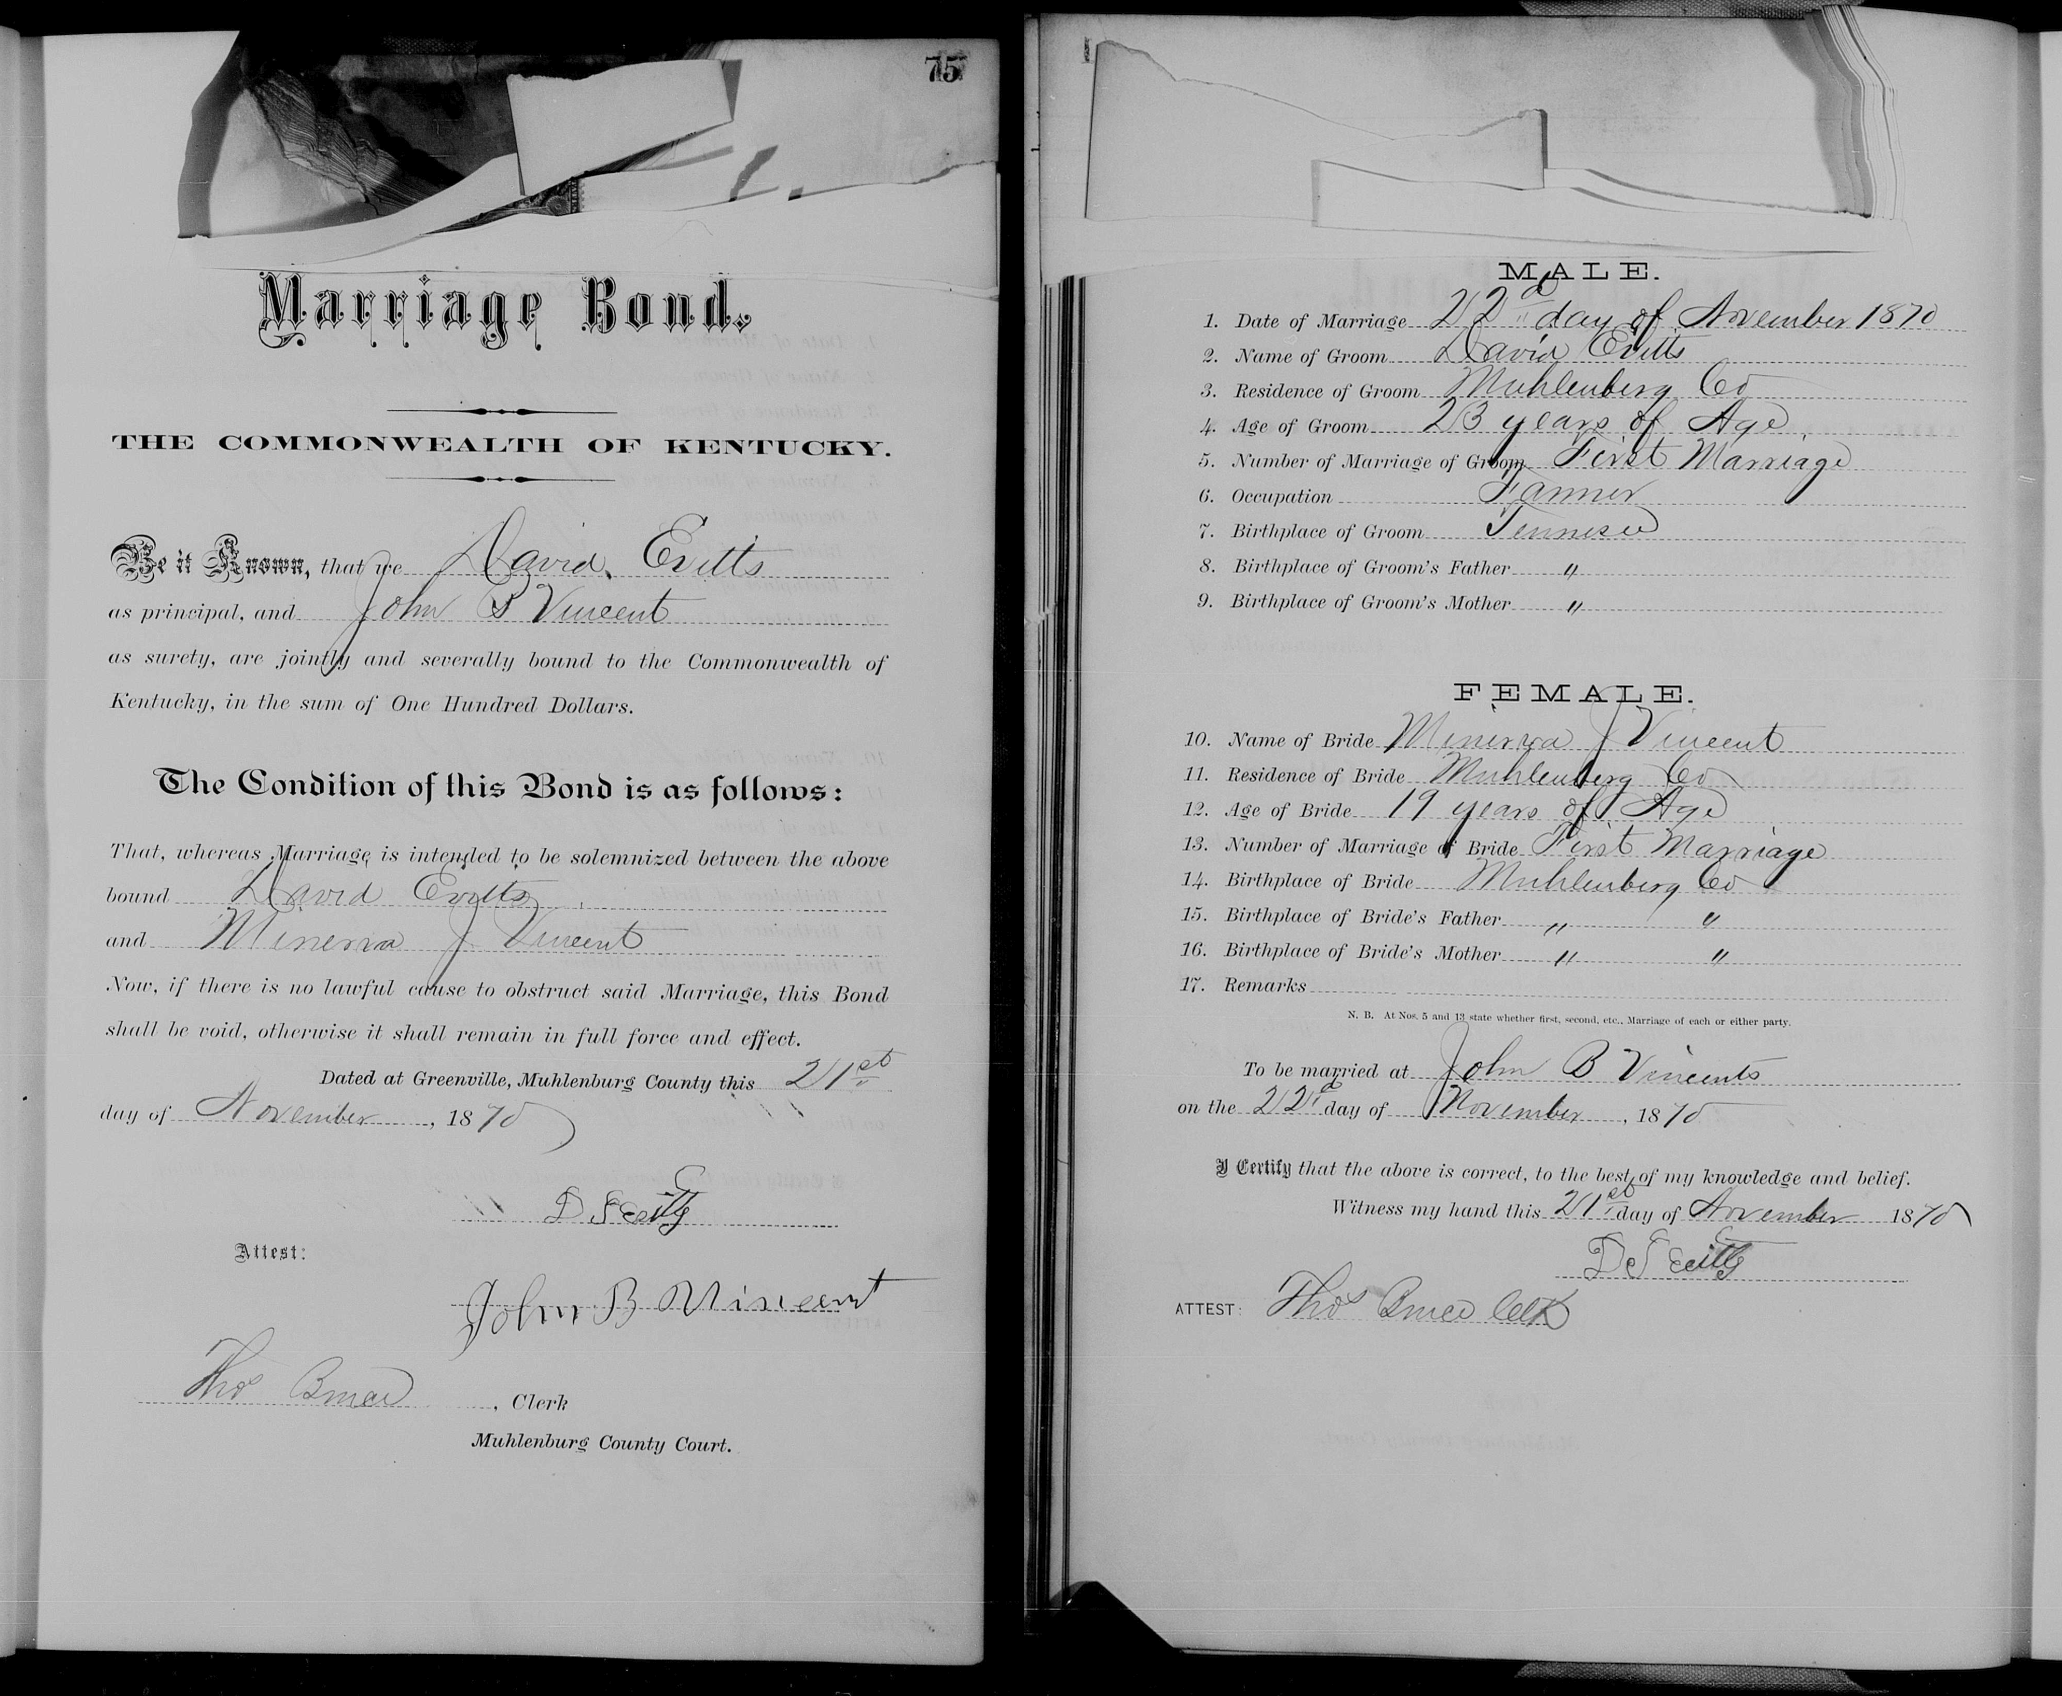 75
Marriage Bond.
THE COMMONWEALTH OF KENTUCKY.
Be it Known, that we David Evitts
as principal, and John B Vincent
as surety, are jointly and severally bound to the Commonwealth of
Kentucky, in the sum of One Hundred Dollars.
The Condition of this Bond is as follows:
That, whereas Marriage is intended to be solemnized between the above
bound David Evitts
and Minerva J Vincent
Now, if there is no lawful cause to obstruct said Marriage, this Bond
shall be void, otherwise it shall remain in full force and effect.
Dated at Greenville, Muhlenburg County this 21st
day of November, 1870
D T Evitts
Attest:
John B Vincent
Thos Bruce, Clerk
Muhlenburg County Court.
MALE.
1. Date of Marriage 22d day of November 1870
2. Name of Groom David Evitts
3. Residence of Groom Muhlenberg Co
4. Age of Groom 23 years of Age
5. Number of Marriage of Groom First Marriage
6. Occupation Farmer
7. Birthplace of Groom Tennessee
8. Birthplace of Groom's Father "
9. Birthplace of Groom's Mother "
FEMALE.
10. Name of Bride Minerva J Vincent
11. Residence of Bride Muhlenberg Co
12. Age of Bride 19 years of Age
13. Number of Marriage of Bride First Marriage
14. Birthplace of Bride Muhlenberg Co
15. Birthplace of Bride's Father " "
16. Birthplace of Bride's Mother " "
17. Remarks
N. B. At Nos. 5 and 13 state whether first, second, etc., Marriage of each or either party.
To be married at John B Vincents
on the 22d day of November, 1870
I Certify that the above is correct, to the best of my knowledge and belief.
Witness my hand this 21st day of November 1870
D T Evitts
ATTEST: Thos Bruce Clk